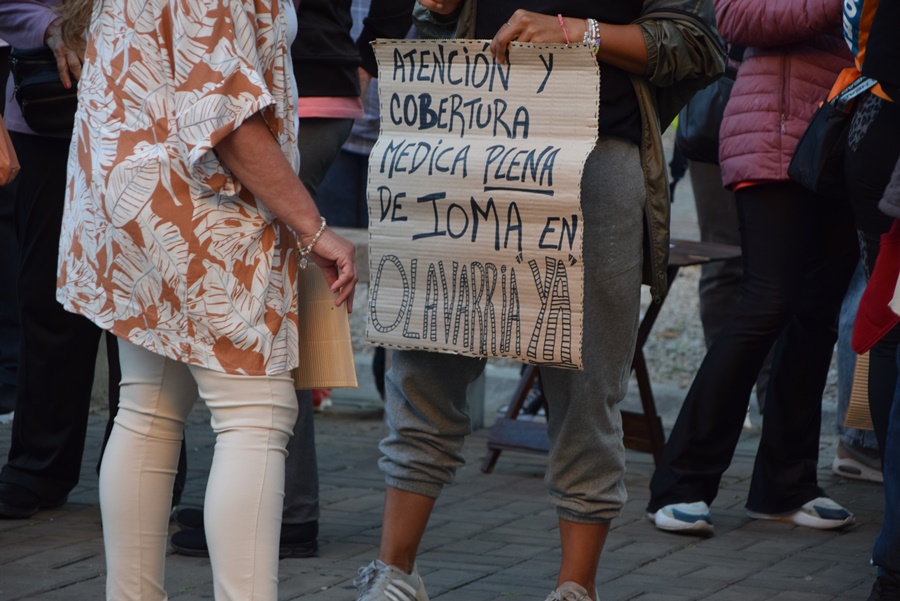 ATENCIÓN Y
COBERTURA
MEDICA PLENA
DE IOMA EN
OLAVARRIA "YA"